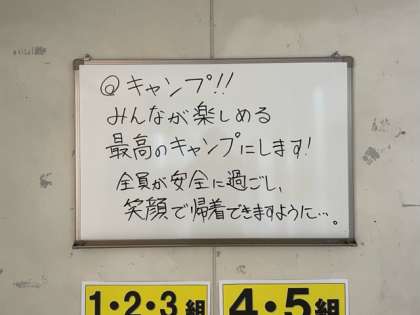 @キャンプ!!
みんなが楽しめる
最高のキャンプにします!
全員が安全に過ごし、
笑顔で帰着できますように…。
1・2・3組
4・5組